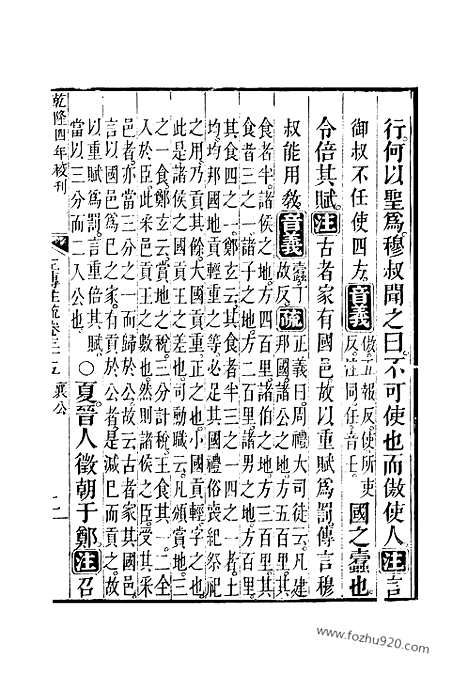 行何以聖爲穆叔聞之曰不可使也而傲使人注言
御叔不任使四方音義傲五報反使所吏反注同任音壬國之蠹也
令倍其賦注古者家有國邑故以重賦爲罰傳言穆
叔能用教音義蠹丁故反疏正義曰周禮大司徒云凡建邦國諸公之地方五百里其
食者半諸侯之地方四百里諸伯之地方三百里其
食者三之一諸子之地方二百里諸男之地方百里
其食四之一鄭玄云其食者半三之一四之一者土
均均邦國地貢輕重之等必足其國禮俗喪紀祭祀
之用乃貢其餘大國貢重正之也小國貢輕字之也
此是諸侯之國貢王之差也司勳職云凡頒賞地三
之一食鄭玄云賞地之稅三分計稅王食其一二全
入於臣此采邑貢王之數也然則諸侯之臣受其采
邑者亦當三分之一而歸於公故云古者家其國邑
言以國邑爲已之家有貢於公者是減已而貢之故
以重賦爲罰言重倍其賦
當以三分而二入公也○夏晉人徵朝于鄭注召
乾隆四年校刊
襄公
www.fozhu920.com